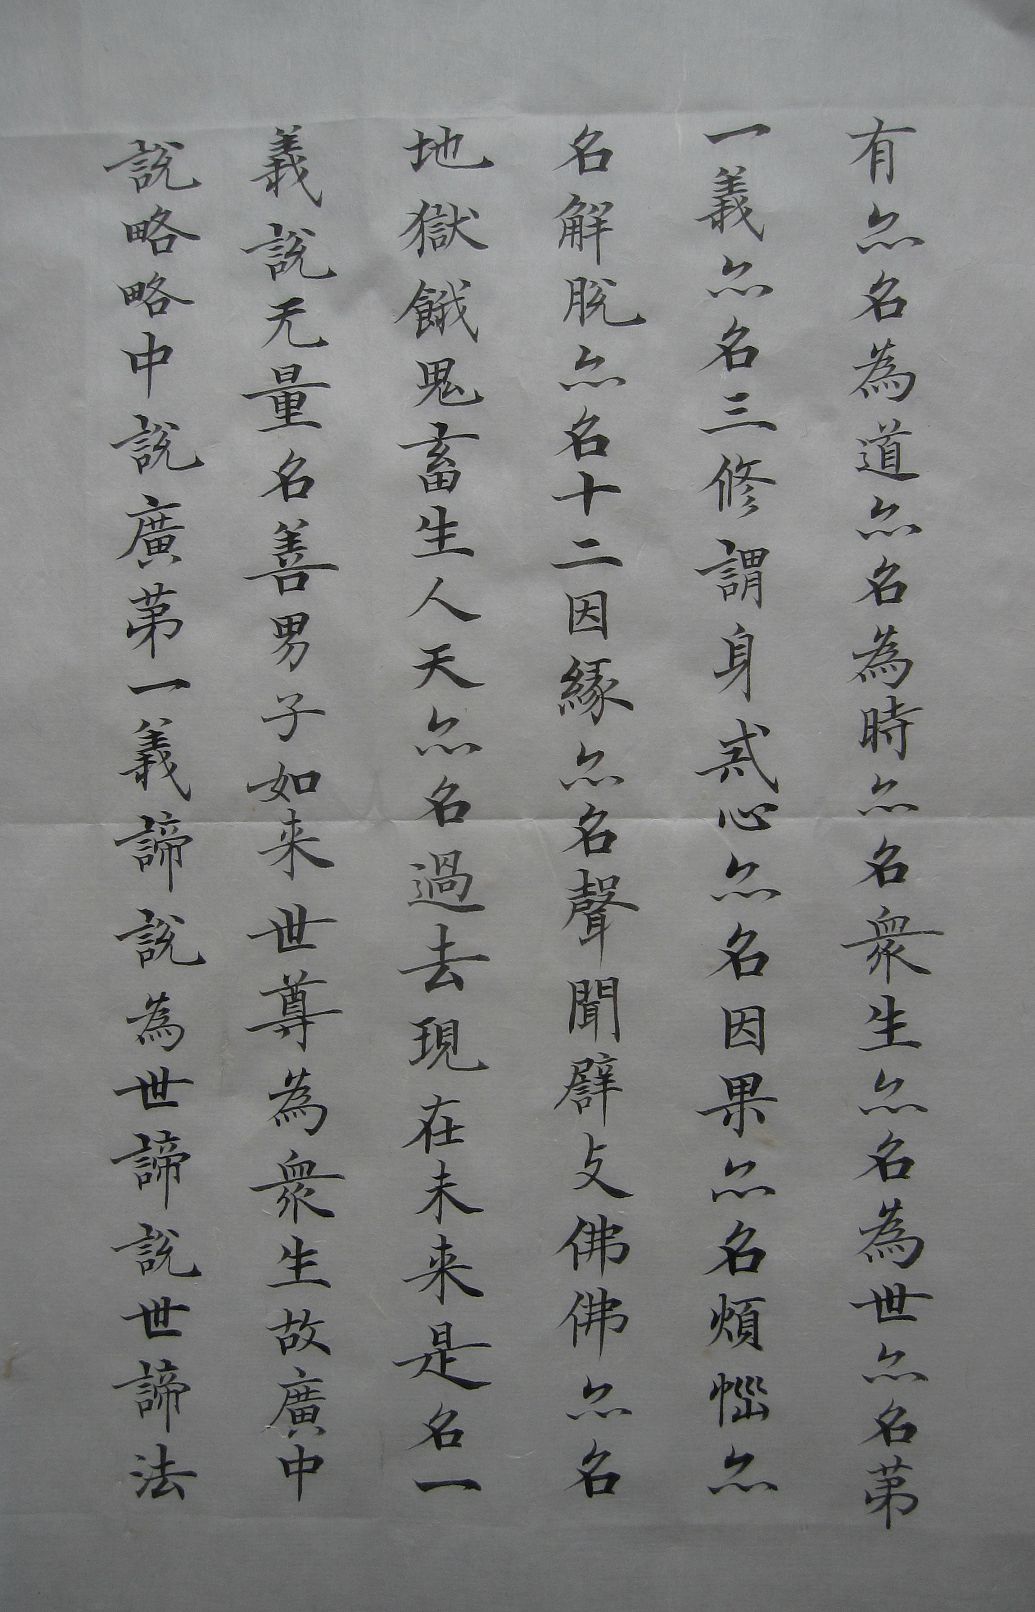 有亦名為道亦名為時亦名衆生亦名為世亦名苐
一義亦名三修謂身戒心亦名因果亦名煩惱亦
名解脫亦名十二因緣亦名聲聞辟支佛佛亦名
地獄餓鬼畜生人天亦名過去現在未来是名一
義說无量名善男子如来世尊為衆生故廣中
說略略中說廣苐一義諦說為世諦說世諦法